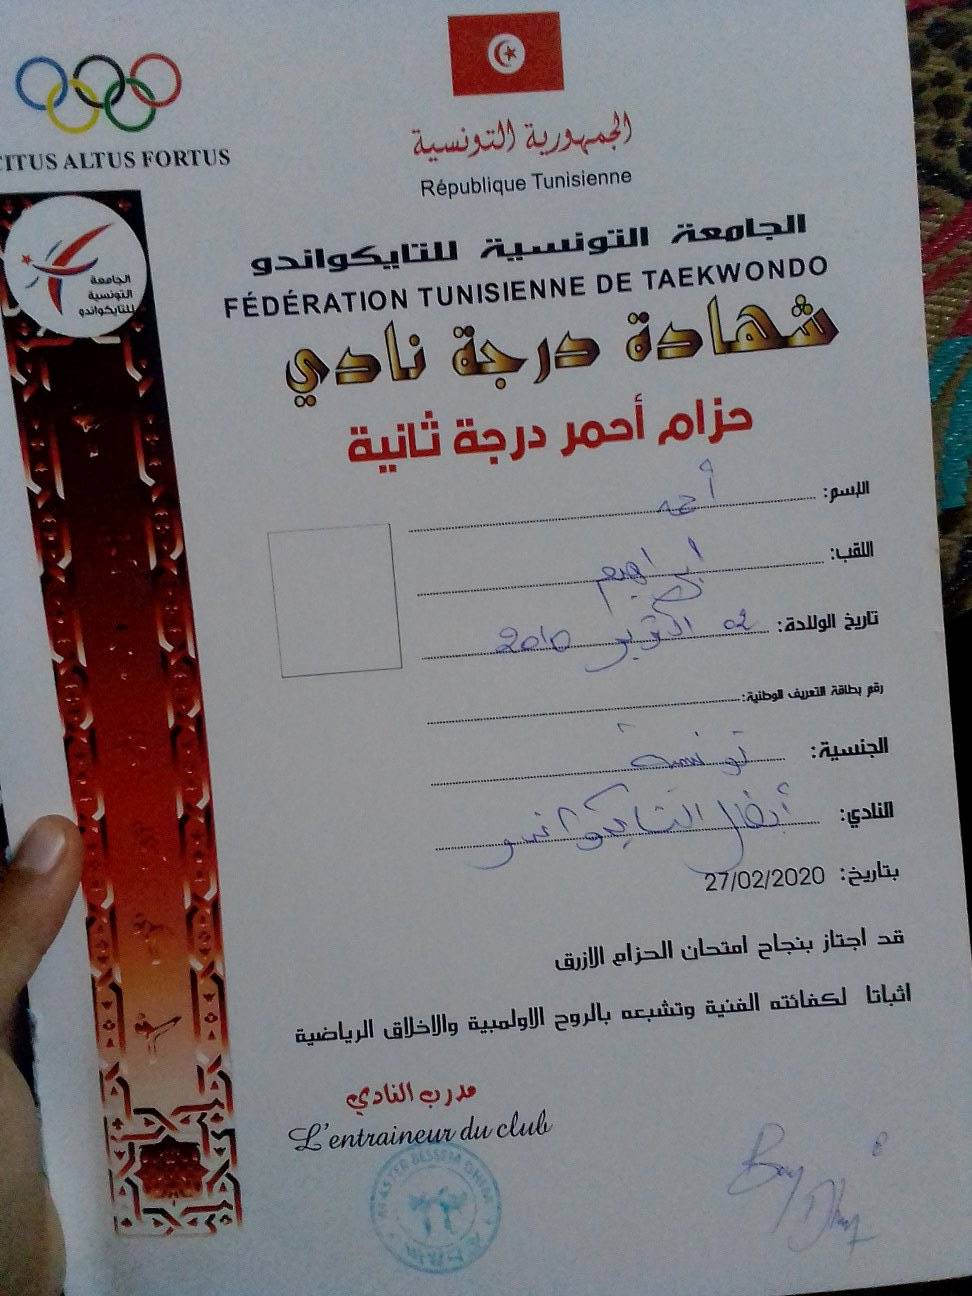 CITUS ALTUS FORTUS
الجمهورية التونسية
République Tunisienne
الجامعة
التونسية
للتايكواندو
الجامعة التونسية للتايكواندو
FÉDÉRATION TUNISIENNE DE TAEKWONDO
شهادة درجة نادي
حزام أحمر درجة ثانية
الإسم: أحمد
اللقب: ابراهيم
تاريخ الولادة: 02 اكتوبر 2010
رقم بطاقة التعريف الوطنية:
الجنسية: تونسية
النادي: أبطال التايكواندو
بتاريخ: 27/02/2020
قد اجتاز بنجاح امتحان الحزام الازرق
اثباتا لكفائته الفنية وتشبعه بالروح الاولمبية والاخلاق الرياضية
مدرب النادي
L'entraineur du club